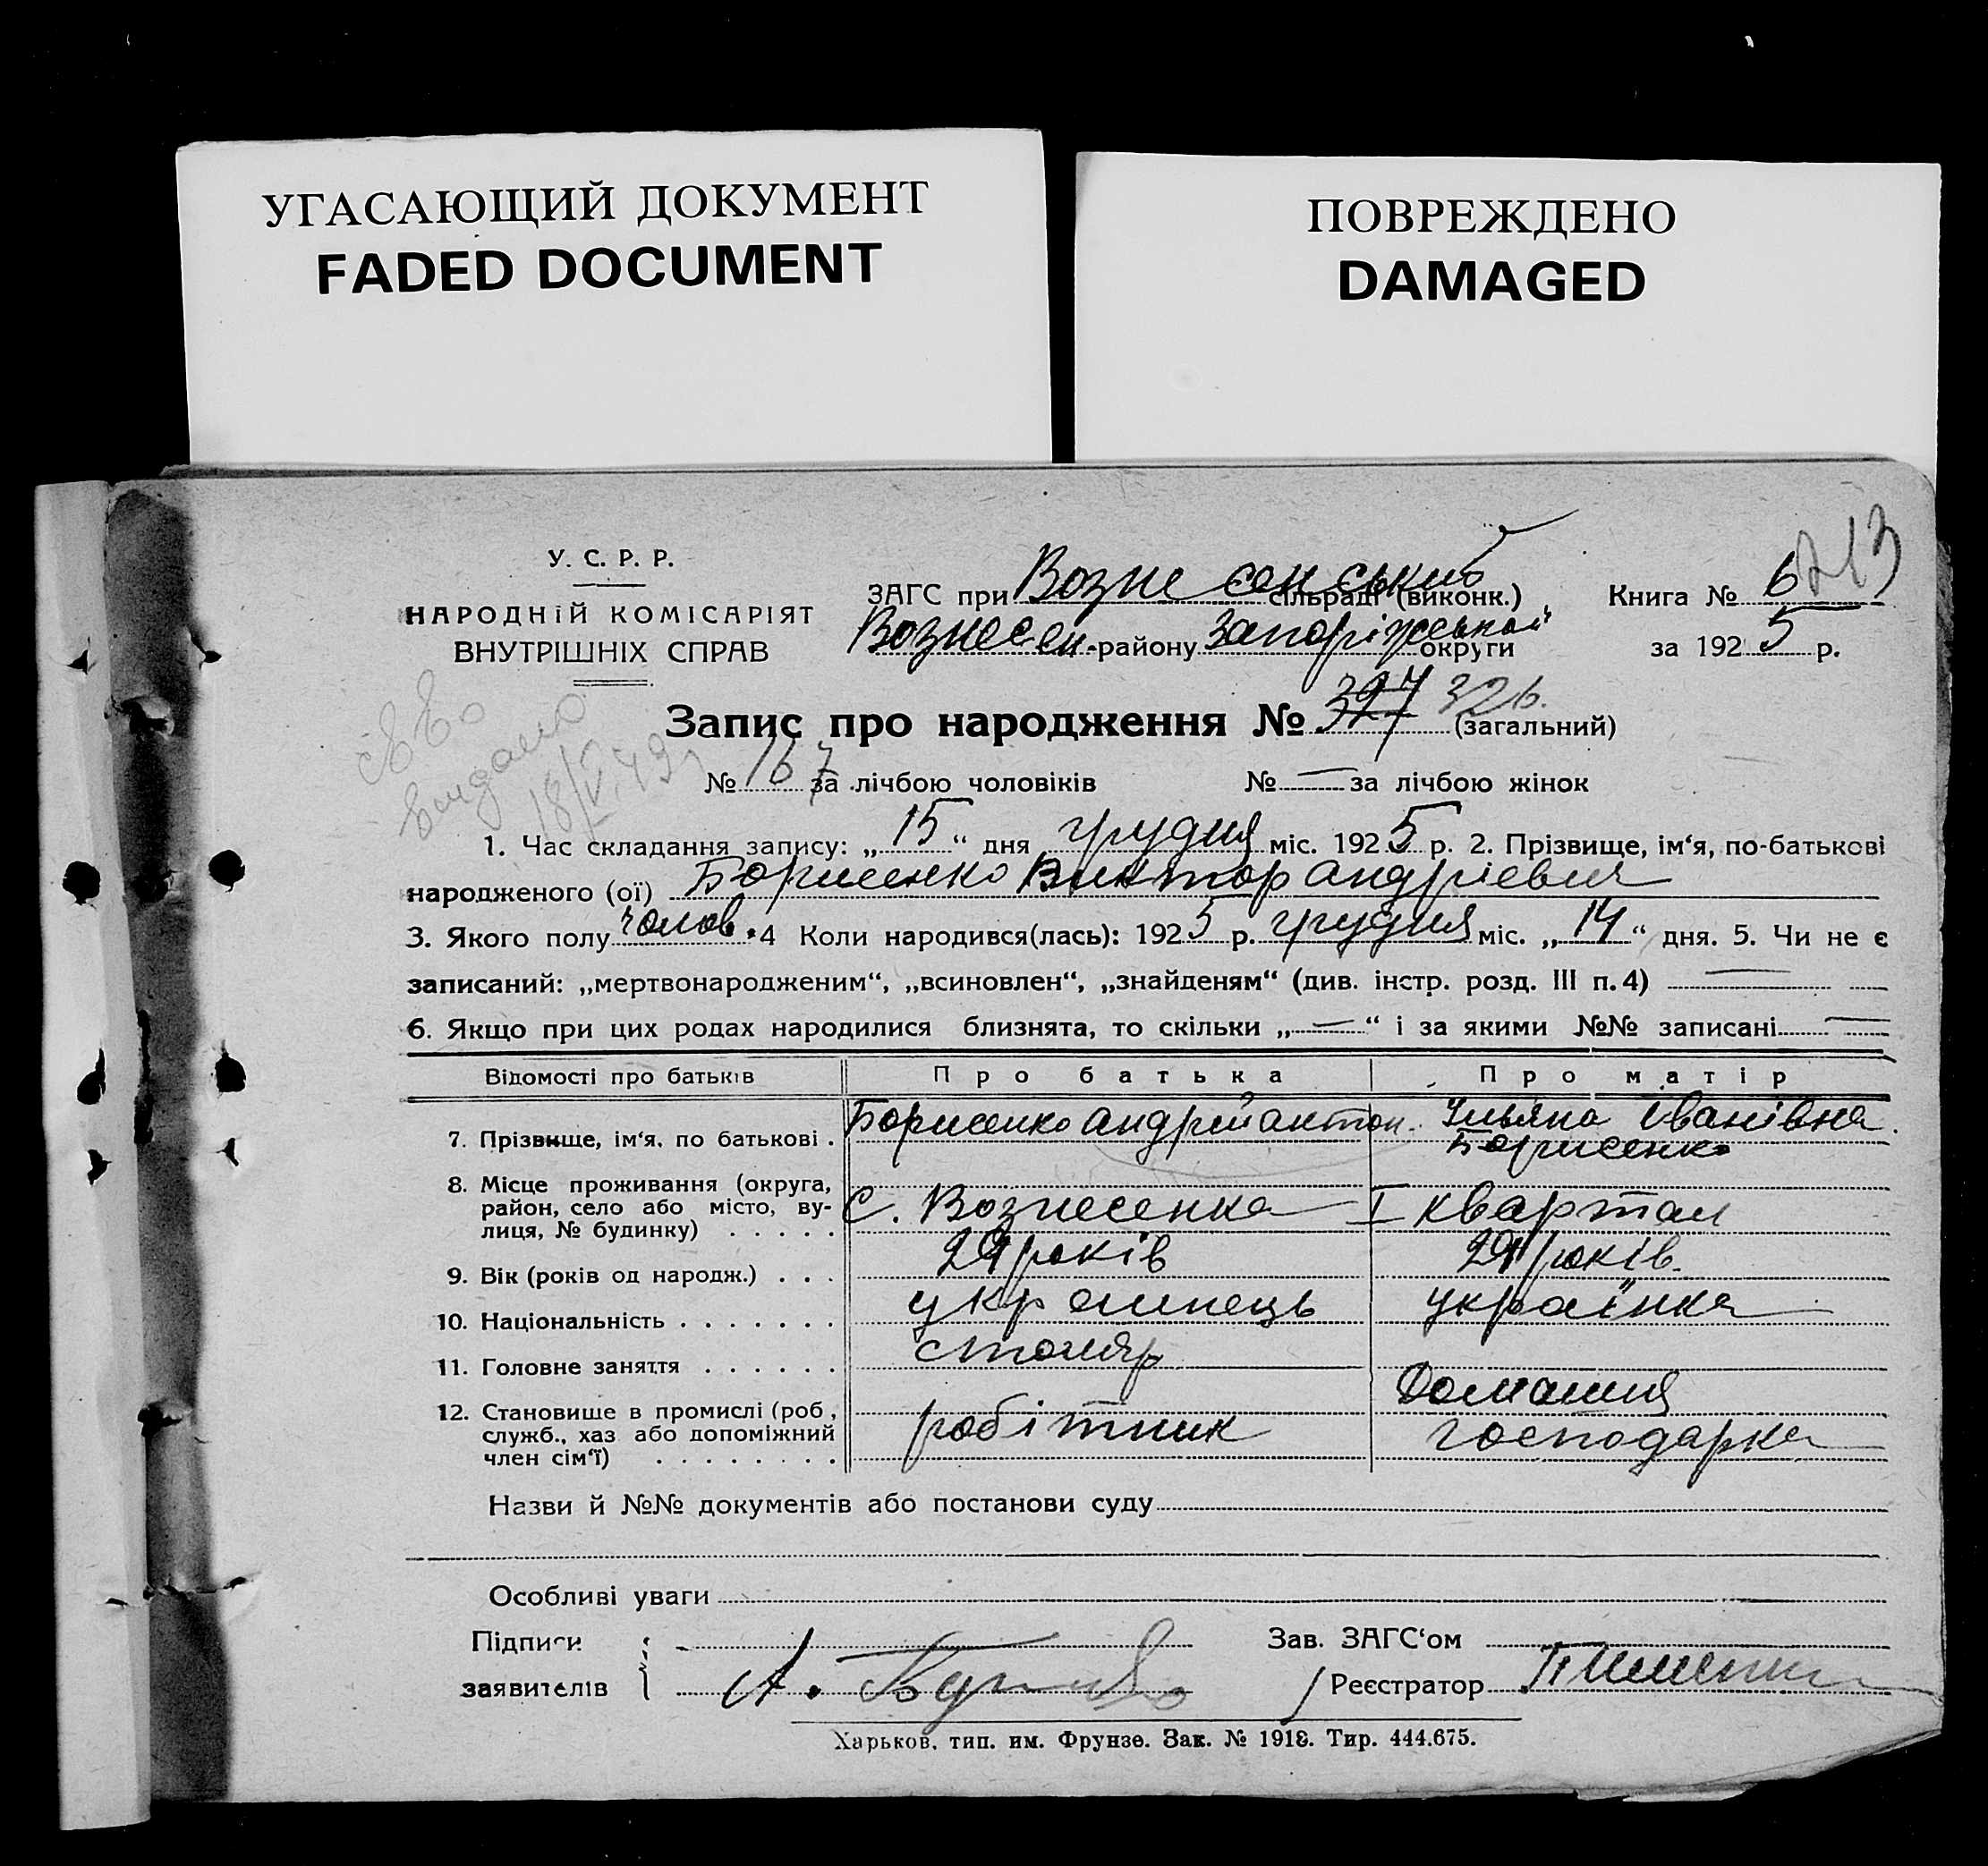 УГАСАЮЩИЙ ДОКУМЕНТ
FADED DOCUMENT
ПОВРЕЖДЕНО
DAMAGED
У. С. Р. Р.
НАРОДНІЙ КОМІСАРІЯТ
ВНУТРІШНІХ СПРАВ
ЗАГС при Вознесенській сільраді (виконк.)
Вознесен. району Запоріжської округи
Книга № 6
за 1925 р.
213
Запис про народження № 327 326. (загальний)
№ 167 за лічбою чоловіків № — за лічбою жінок
видано
18/V 49
1. Час складання запису: „15“ дня грудня міс. 1925 р. 2. Прізвище, ім‘я, по-батькові
народженого (ої) Борисенко Виктор Андрієвич
3. Якого полу чолов. 4 Коли народився(лась): 1925 р. грудня міс. „14“ дня. 5. Чи не є
записаний: „мертвонародженим“, „всиновлен“, „знайденям“ (див. інстр. розд. III п. 4) —
6. Якщо при цих родах народилися близнята, то скільки „—“ і за якими №№ записані —
Відомості про батьків Про батька Про матір
7. Прізвище, ім‘я, по батькові . Борисенко Андрій Антон. Ульяна Іванівна
Борисенко
8. Місце проживання (округа,
район, село або місто, ву-
лиця, № будинку) . . . . . С. Вознесенка — I квартал
9. Вік (років од народж.) . . . 29 років 29 років
10. Національність . . . . . . . українець українка
11. Головне заняття . . . . . . столяр
Домашня
12. Становище в промислі (роб.,
служб., хаз або допоміжний
член сім‘ї) . . . . . . . . робітник господарка
Назви й №№ документів або постанови суду
Особливі уваги
Підписи
заявителів А.
Зав. ЗАГС‘ом
Реєстратор
Харьков, тип. им. Фрунзе. Зак. № 1918. Тир. 444.675.